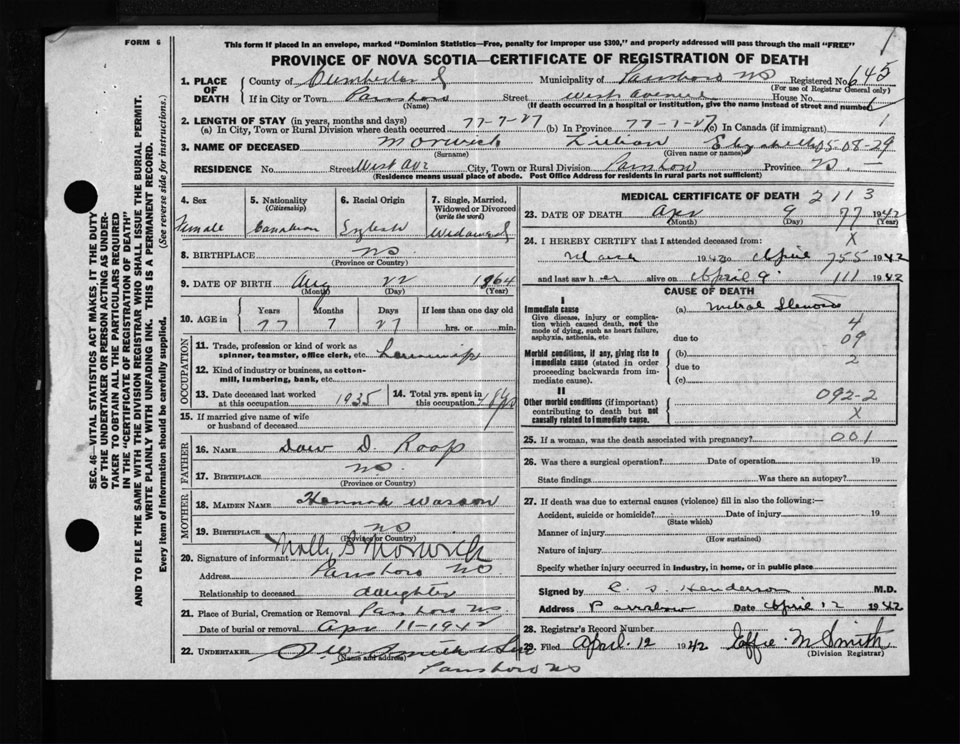 FORM 6
This form if placed in an envelope, marked "Dominion Statistics—Free, penalty for improper use $300," and properly addressed will pass through the mail "FREE"
PROVINCE OF NOVA SCOTIA—CERTIFICATE OF REGISTRATION OF DEATH
1. PLACE OF DEATH
County of Cumberland Municipality of Parrsboro NS Registered No. 645
(For use of Registrar General only)
If in City or Town Parrsboro Street West Avenue House No.
(Name) (If death occurred in a hospital or institution, give the name instead of street and number)
2. LENGTH OF STAY (in years, months and days)
(a) In City, Town or Rural Division where death occurred 77-7-27 (b) In Province 77-7-27 (c) In Canada (if immigrant)
3. NAME OF DECEASED Lillian Elizabeth 05-08-29
(Surname) (Given name or names)
RESIDENCE No. Street West Ave City, Town or Rural Division Parrsboro Province N.S.
(Residence means usual place of abode. Post Office Address for residents in rural parts not sufficient)
4. Sex
Female
5. Nationality
(Citizenship)
Canadian
6. Racial Origin
English
7. Single, Married, Widowed or Divorced
(write the word)
Widowed
8. BIRTHPLACE NS
(Province or Country)
9. DATE OF BIRTH Aug 22 1864
(Month) (Day) (Year)
10. AGE in Years Months Days If less than one day old
77 7 27 hrs. or min.
OCCUPATION
11. Trade, profession or kind of work as
spinner, teamster, office clerk, etc.
12. Kind of industry or business, as cotton-
mill, lumbering, bank, etc.
13. Date deceased last worked
at this occupation 1935
14. Total yrs. spent in
this occupation
15. If married give name of wife
or husband of deceased
FATHER
16. NAME D. Roop
17. BIRTHPLACE NS
(Province or Country)
MOTHER
18. MAIDEN NAME Hannah Wasson
19. BIRTHPLACE NS
(Province or Country)
20. Signature of informant
Address Parrsboro NS
Relationship to deceased daughter
21. Place of Burial, Cremation or Removal Parrsboro NS.
Date of burial or removal Apr 11-1942
22. UNDERTAKER Smith
(Name and address)
Parrsboro NS
MEDICAL CERTIFICATE OF DEATH 2113
23. DATE OF DEATH Apr 9 77 1942
(Month) (Day) (Year)
24. I HEREBY CERTIFY that I attended deceased from: X
March 1942 to April 755 1942
and last saw her alive on April 9 111 1942
CAUSE OF DEATH
I
Immediate cause
Give disease, injury or complica-
tion which caused death, not the
mode of dying, such as heart failure,
asphyxia, asthenia, etc
(a) Mitral Stenosis
4
due to 09
Morbid conditions, if any, giving rise to
immediate cause (stated in order
proceeding backwards from im-
mediate cause).
(b)
due to 2
(c)
II
Other morbid conditions (if important)
contributing to death but not
causally related to immediate cause.
092-2
X
25. If a woman, was the death associated with pregnancy? 001
26. Was there a surgical operation? Date of operation 19
State findings Was there an autopsy?
27. If death was due to external causes (violence) fill in also the following:—
Accident, suicide or homicide? Date of injury 19
(State which)
Manner of injury
(How sustained)
Nature of injury
Specify whether injury occurred in industry, in home, or in public place
Signed by C. S Henderson M.D.
Address Parrsboro Date April 12 1942
28. Registrar's Record Number
29. Filed April 12 1942 Effie M Smith
(Division Registrar)
SEC. 46—VITAL STATISTICS ACT MAKES IT THE DUTY
OF THE UNDERTAKER OR PERSON ACTING AS UNDER-
TAKER TO OBTAIN ALL THE PARTICULARS REQUIRED
IN THE "CERTIFICATE OF REGISTRATION OF DEATH"
AND TO FILE THE SAME WITH THE DIVISION REGISTRAR WHO SHALL ISSUE THE BURIAL PERMIT.
WRITE PLAINLY WITH UNFADING INK. THIS IS A PERMANENT RECORD.
Every item of information should be carefully supplied. (See reverse side for instructions.)